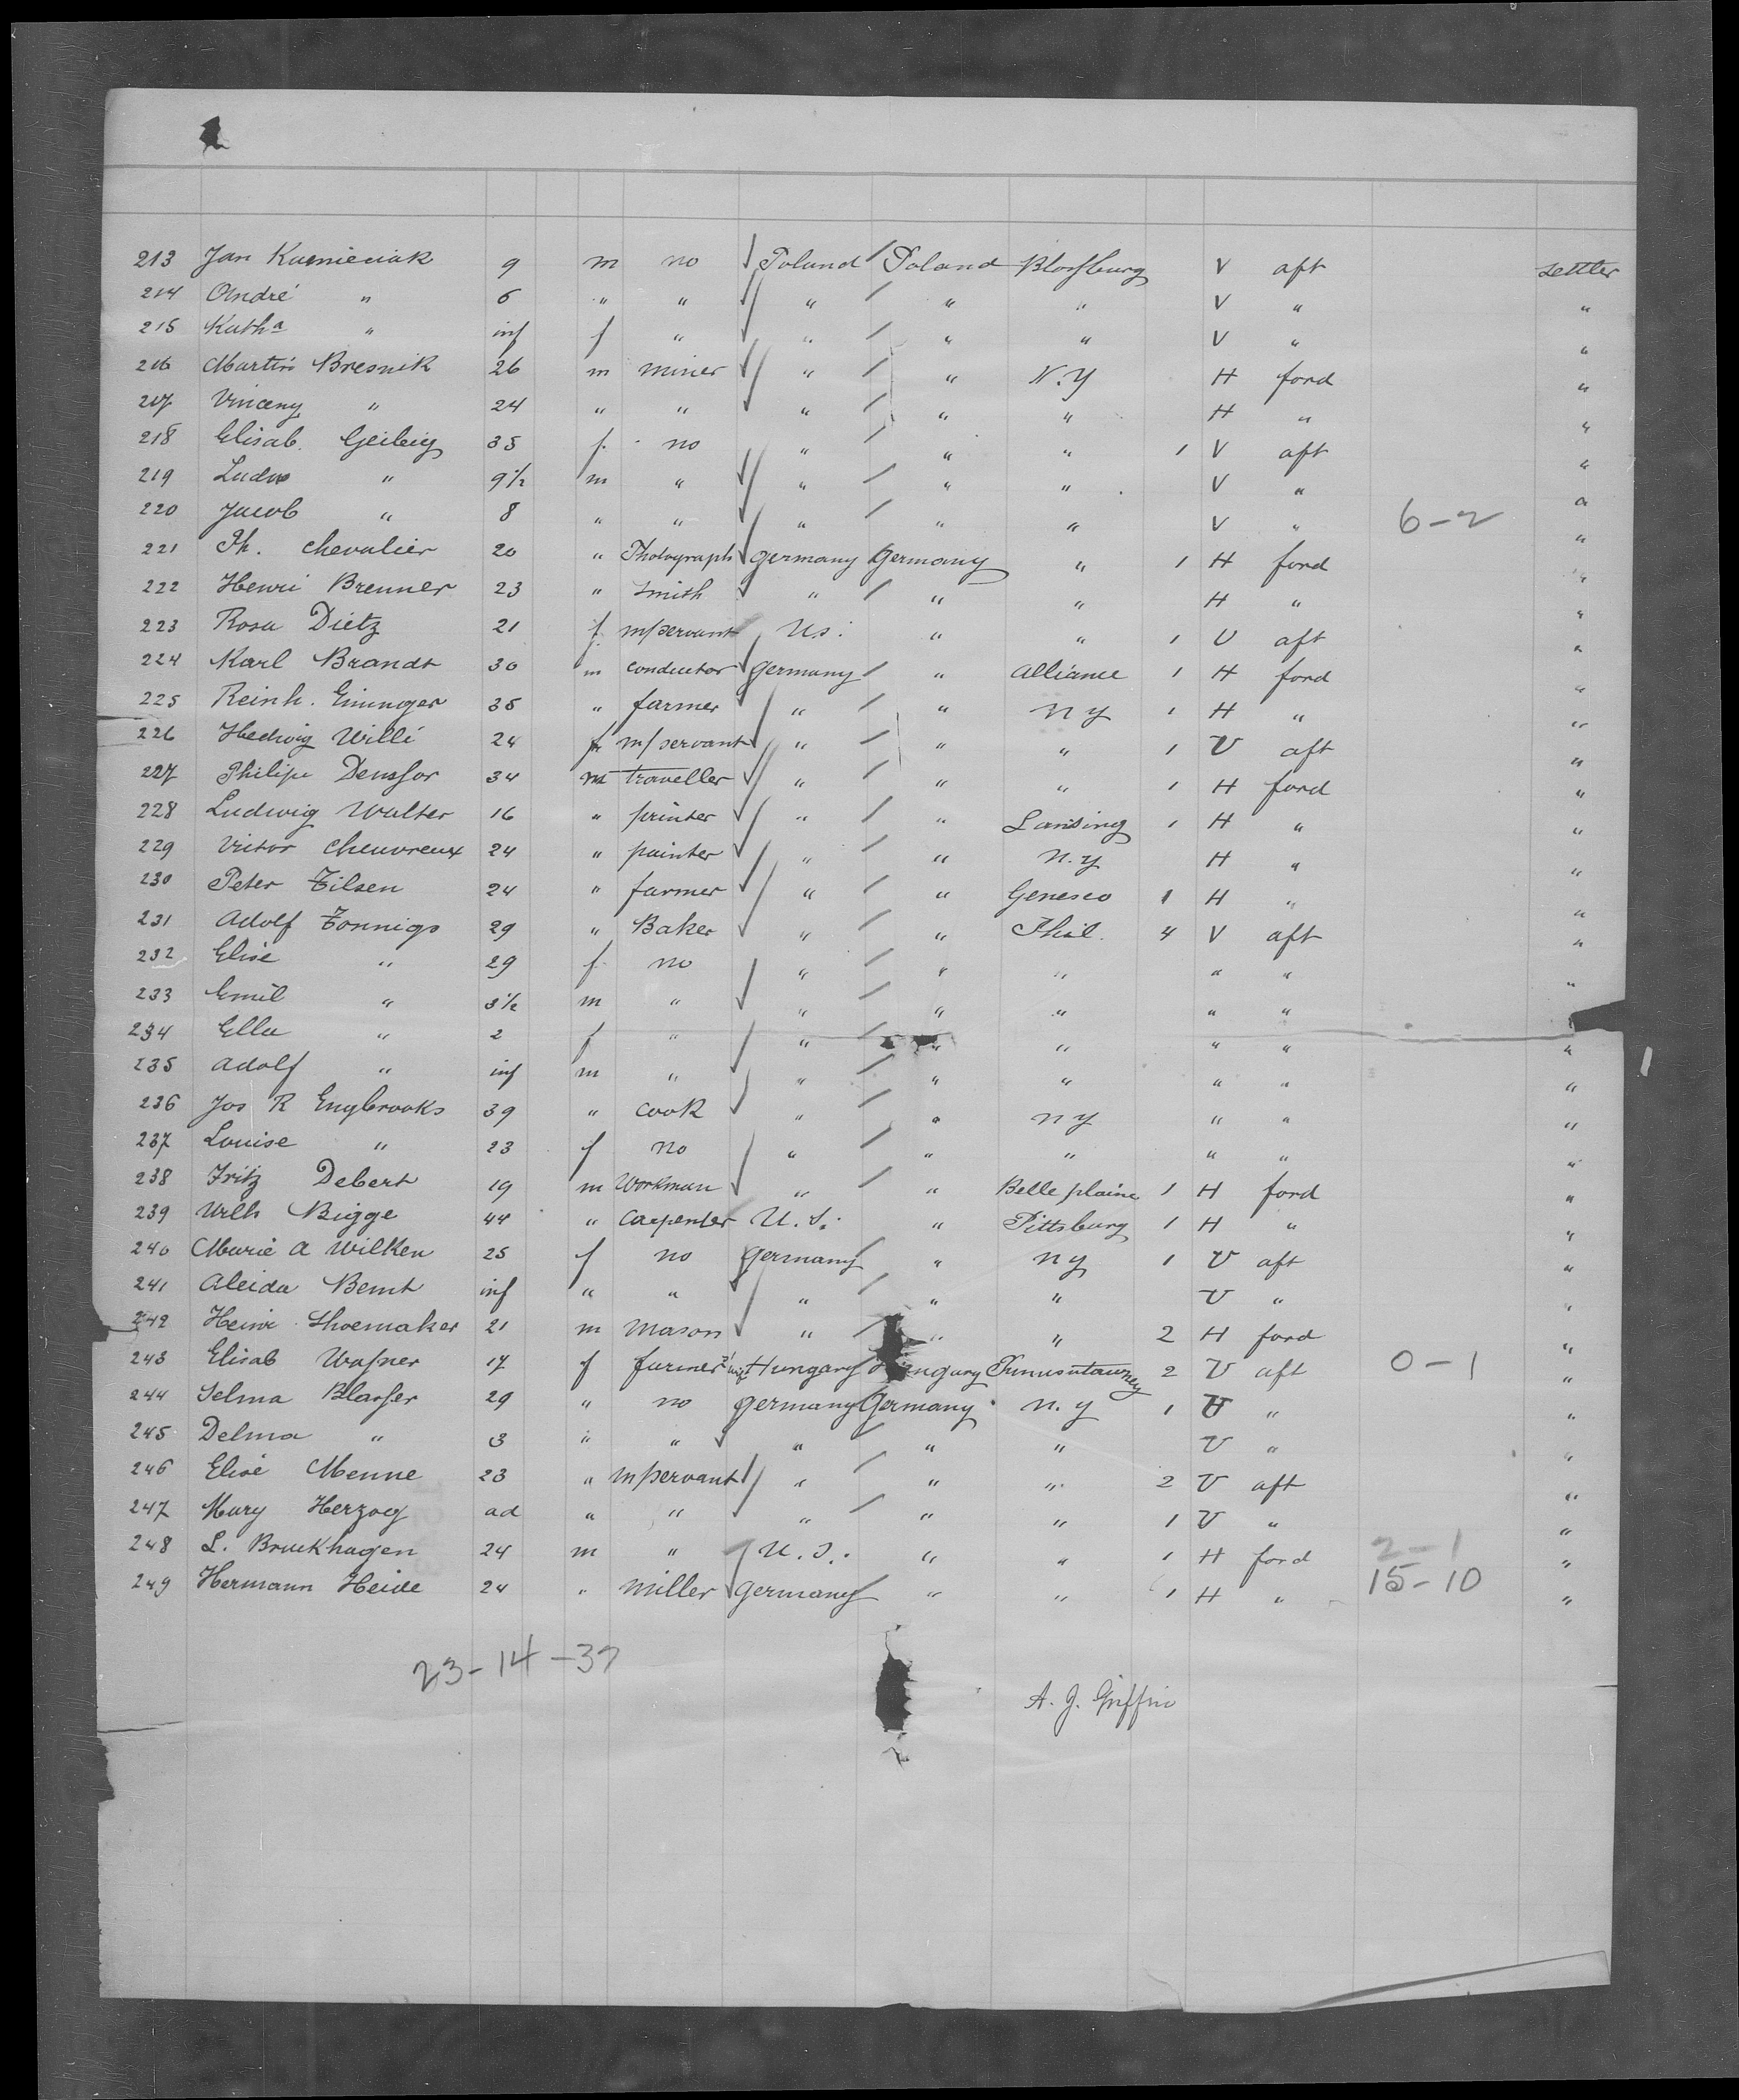 213 Jan Kusnieciak 9 m no Poland Poland Blossburg V aft settler
214 André " 6 " " " " " V " "
215 Kath a " inf f " " " " V " "
216 Martin Bresnik 26 m miner " " N.Y H ford "
217 Vinceny " 24 " " " " " H " "
218 Elisab. Geibig 35 f. no " " " 1 V aft "
219 Ludw " 9 1/2 m " " " " V " "
220 Jacob " 8 " " " " " V " 6-2 "
221 Ph. Chevalier 20 " Photograph Germany Germany " 1 H ford "
222 Henri Brenner 23 " Smith " " " H " "
223 Rosa Dietz 21 f. m/servant U.S. " " 1 V aft "
224 Karl Brandt 30 m conductor Germany " Alliance 1 H ford "
225 Reinh. Eininger 35 " farmer " " N Y 1 H " "
226 Hedwig Willi 24 f m/servant " " " 1 V aft "
227 Philipp Denssor 34 m traveller " " " 1 H ford "
228 Ludwig Walter 16 " printer " " Lansing 1 H " "
229 Victor Cheuvreux 24 " painter " " N.Y H " "
230 Peter Tilsen 24 " farmer " " Geneseo 1 H " "
231 Adolf Tonnigs 29 " Baker " " Phil. 4 V aft "
232 Elise " 29 f. no " " " " " "
233 Emil " 3 1/2 m " " " " " " "
234 Ella " 2 f " " " " " " "
235 Adolf " inf m " " " " " " "
236 Jos R Engbrooks 39 " Cook " " N Y " " "
237 Louise " 23 f no " " " " " "
238 Fritz Debert 19 m Workman " " Belle plaine 1 H ford "
239 Wilh Bigge 44 " Carpenter U.S. " Pittsburg 1 H " "
240 Marie A Wilken 25 f no Germany " N Y 1 V aft "
241 Aleida Bemt inf " " " " " V " "
242 Heinr. Shoemaker 21 m Mason " " " 2 H ford "
243 Elisab Wassner 17 f farmer's Hungary Hungary Punxsutawney 2 V aft 0-1 "
244 Selma Blasser 29 " no Germany Germany N.Y 1 V " "
245 Delma " 3 " " " " " V " "
246 Elise Menne 23 " m/servant " " " 2 V aft "
247 Mary Herzog ad " " " " " 1 V " "
248 L. Bruckhagen 24 m " U.S. " " 1 H ford 2-1 "
249 Hermann Heide 24 " miller Germany " " 1 H " 15-10 "
23-14-37
A. J. Griffin